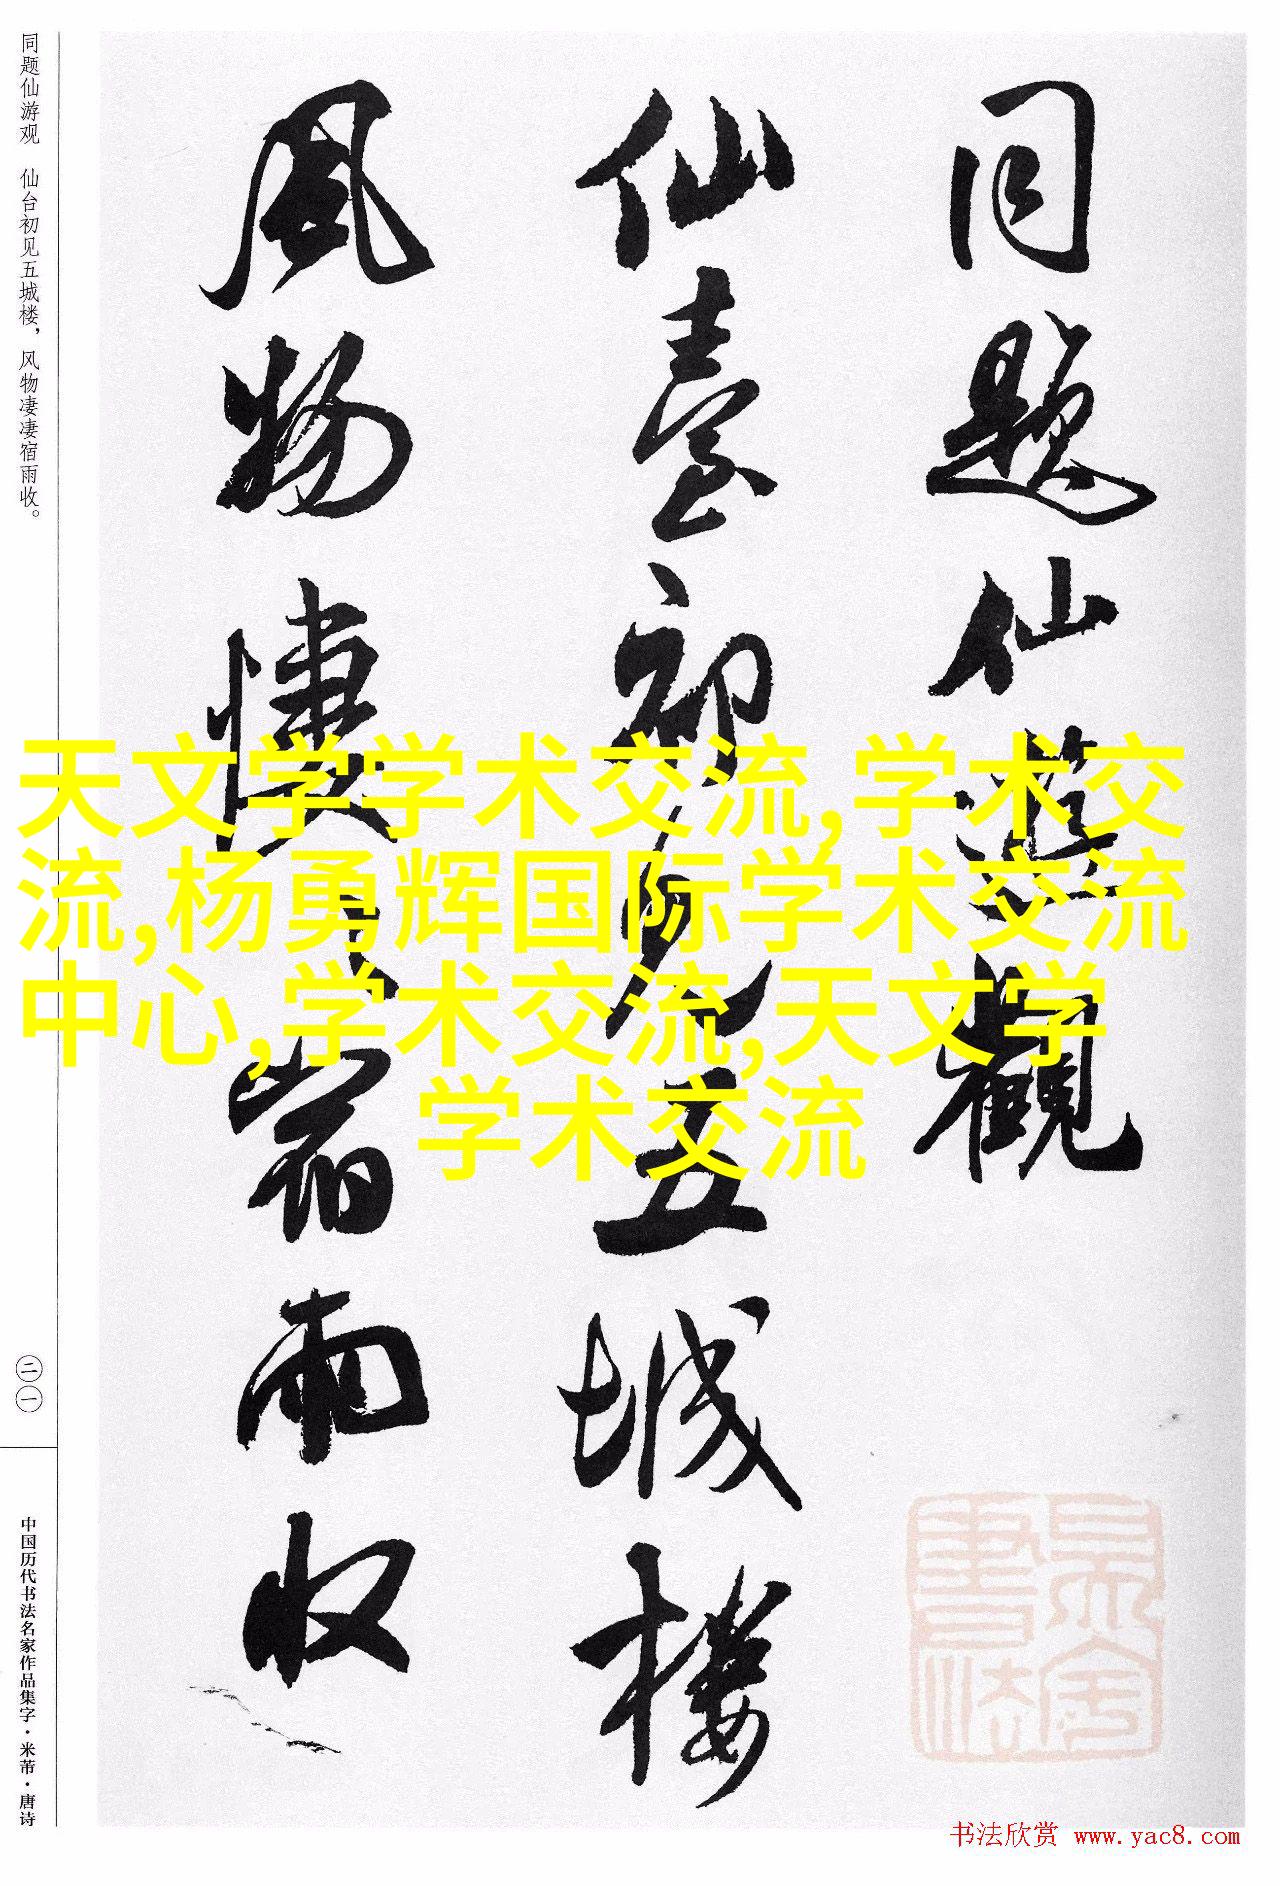 同题仙游观 仙台初见五城楼，风物凄凄宿雨收。
二一
中国历代书法名家作品集字·米芾·唐诗
同题仙遊觀
仙臺初见五城樓
风物悽〻宿雨收
天文学学术交流,学术交
流,杨勇辉国际学术交流
中心,学术交流,天文学
学术交流
书法欣赏 www.yac8.com